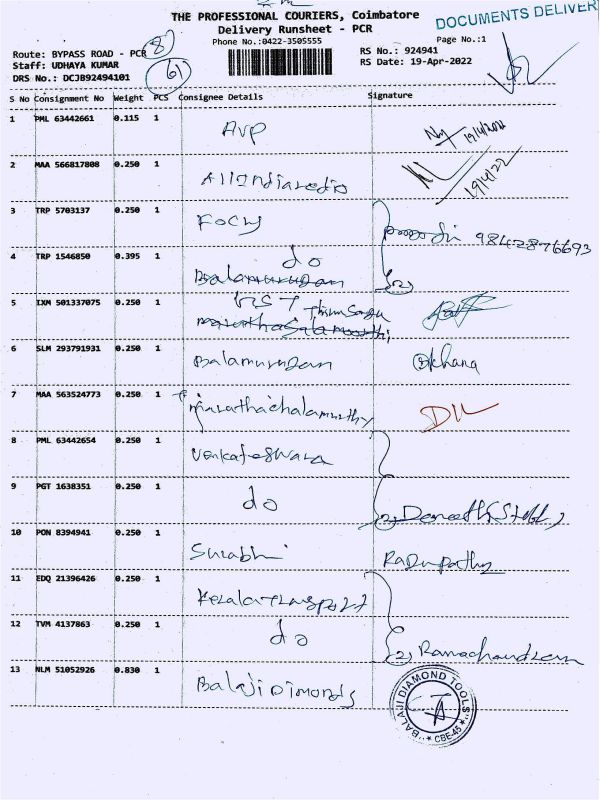 THE PROFESSIONAL COURIERS, Coimbatore
DOCUMENTS DELIVER
Delivery Runsheet - PCR
Phone No.:0422-3505555
Page No.:1
Route: BYPASS ROAD - PCR
8
RS No.: 924941
Staff: UDHAYA KUMAR
RS Date: 19-Apr-2022
DRS No.: DCJB92494101
61
S No Consignment No Weight PCS Consignee Details Signature
1 PML 63442661 0.115 1 AVP 19/4/2022
2 MAA 566817808 0.250 1 All India radio 19/4/22
3 TRP 5703137 0.250 1 Focus 9842876693
4 TRP 1546850 0.395 1 do
Balamurugan (2)
5 IXM 501337075 0.250 1
6 SLM 293791931 0.250 1 Balamurugan
7 MAA 563524773 0.250 1
8 PML 63442654 0.250 1 Venkateswara
9 PGT 1638351 0.250 1 do (2)
10 PON 8394941 0.250 1 Surabhi
11 EDQ 21396426 0.250 1 Kerala transport
12 TVM 4137863 0.250 1 do (2) Ramachandran
13 NLM 51052926 0.830 1 Balaji Dimonds
BALAJI DIAMOND TOOLS
CBE-45